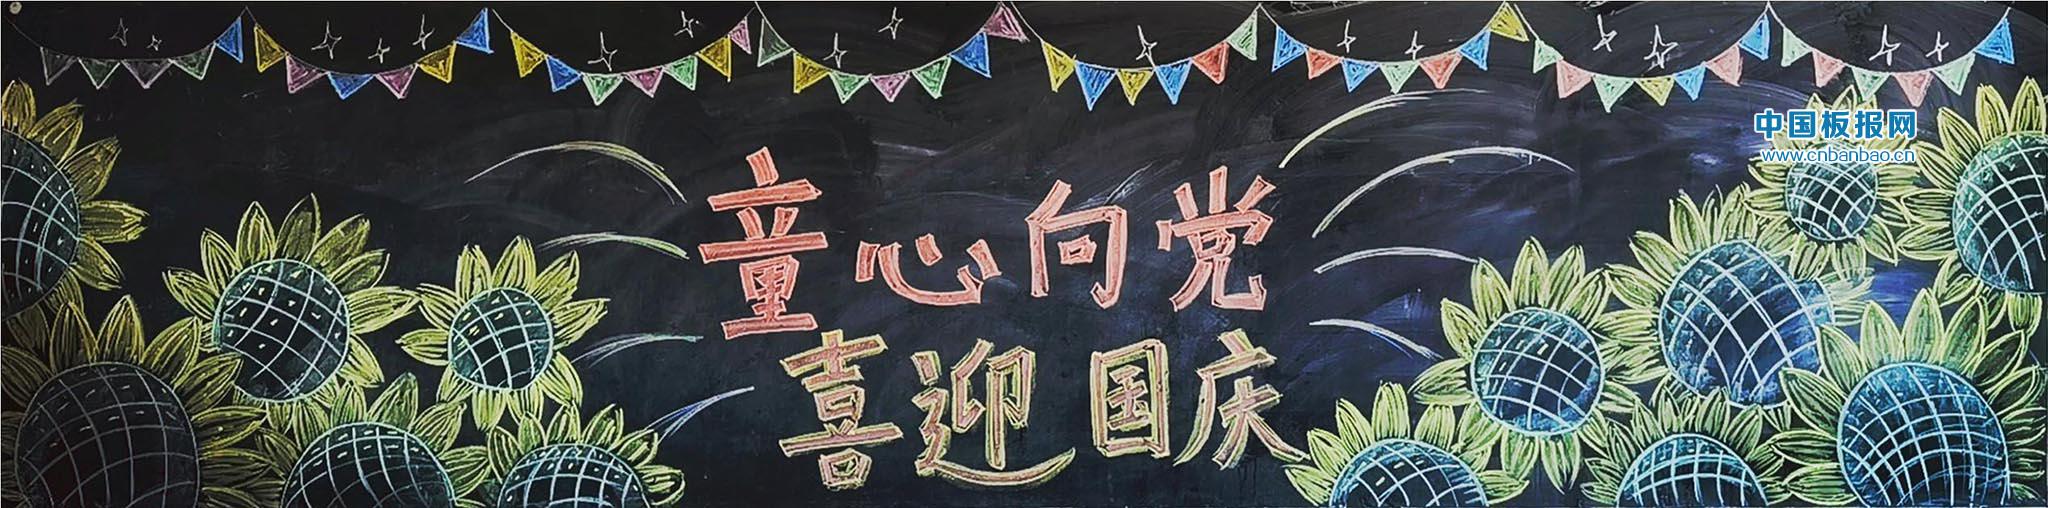 中国板报网
www.cnbanbao.cn
童心向党
喜迎国庆